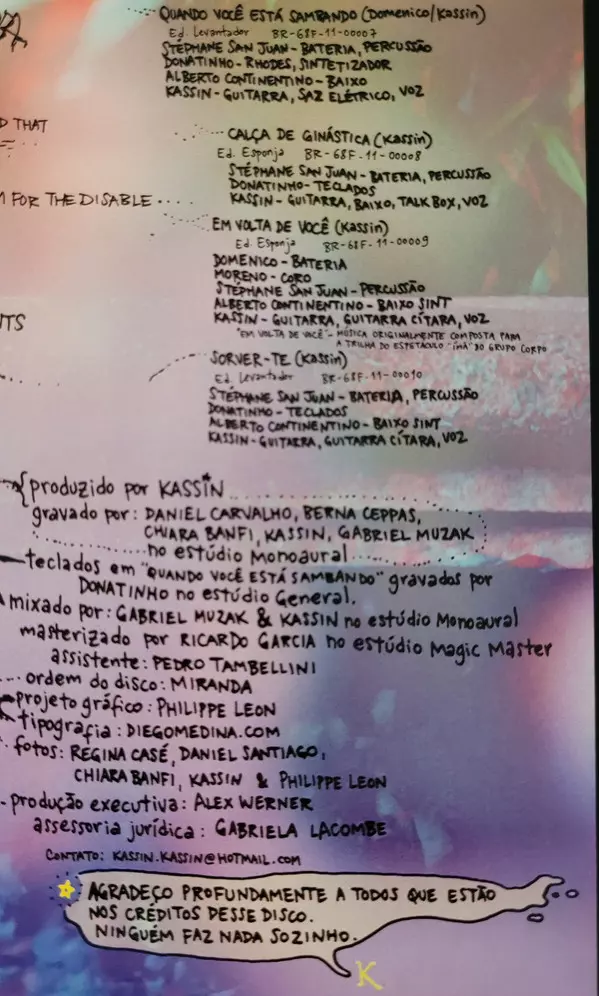 QUANDO VOCÊ ESTÁ SAMBANDO (Domenico/Kassin)
Ed. Levantador BR-68F-11-00007
STÉPHANE SAN JUAN - BATERIA, PERCUSSÃO
DONATINHO - RHODES, SINTETIZADOR
ALBERTO CONTINENTINO - BAIXO
KASSIN - GUITARRA, SAZ ELÉTRICO, VOZ
THAT
CALÇA DE GINÁSTICA (Kassin)
Ed. Esponja BR-68F-11-00008
STÉPHANE SAN JUAN - BATERIA, PERCUSSÃO
DONATINHO - TECLADOS
KASSIN - GUITARRA, BAIXO, TALK BOX, VOZ
FOR THE DISABLE
EM VOLTA DE VOCÊ (Kassin)
Ed. Esponja BR-68F-11-00009
DOMENICO - BATERIA
MORENO - CORO
STÉPHANE SAN JUAN - PERCUSSÃO
ALBERTO CONTINENTINO - BAIXO SINT
KASSIN - GUITARRA, GUITARRA CÍTARA, VOZ
"EM VOLTA DE VOCÊ" - MÚSICA ORIGINALMENTE COMPOSTA PARA
A TRILHA DO ESPETÁCULO "ÍMÃ" DO GRUPO CORPO
UTS
SORVER-TE (Kassin)
Ed. Levantador BR-68F-11-00010
STÉPHANE SAN JUAN - BATERIA, PERCUSSÃO
DONATINHO - TECLADOS
ALBERTO CONTINENTINO - BAIXO SINT
KASSIN - GUITARRA, GUITARRA CÍTARA, VOZ
produzido por KASSIN
gravado por: DANIEL CARVALHO, BERNA CEPPAS,
CHIARA BANFI, KASSIN, GABRIEL MUZAK
no estúdio Monoaural
teclados em "QUANDO VOCÊ ESTÁ SAMBANDO" gravados por
DONATINHO no estúdio General.
mixado por: GABRIEL MUZAK & KASSIN no estúdio Monoaural
masterizado por RICARDO GARCIA no estúdio Magic Master
assistente: PEDRO TAMBELLINI
ordem do disco: MIRANDA
projeto gráfico: PHILIPPE LEON
tipografia: DIEGOMEDINA.COM
fotos: REGINA CASÉ, DANIEL SANTIAGO,
CHIARA BANFI, KASSIN & PHILIPPE LEON
produção executiva: ALEX WERNER
assessoria jurídica: GABRIELA LACOMBE
CONTATO: KASSIN.KASSIN@HOTMAIL.COM
AGRADEÇO PROFUNDAMENTE A TODOS QUE ESTÃO
NOS CRÉDITOS DESSE DISCO.
NINGUÉM FAZ NADA SOZINHO.
K